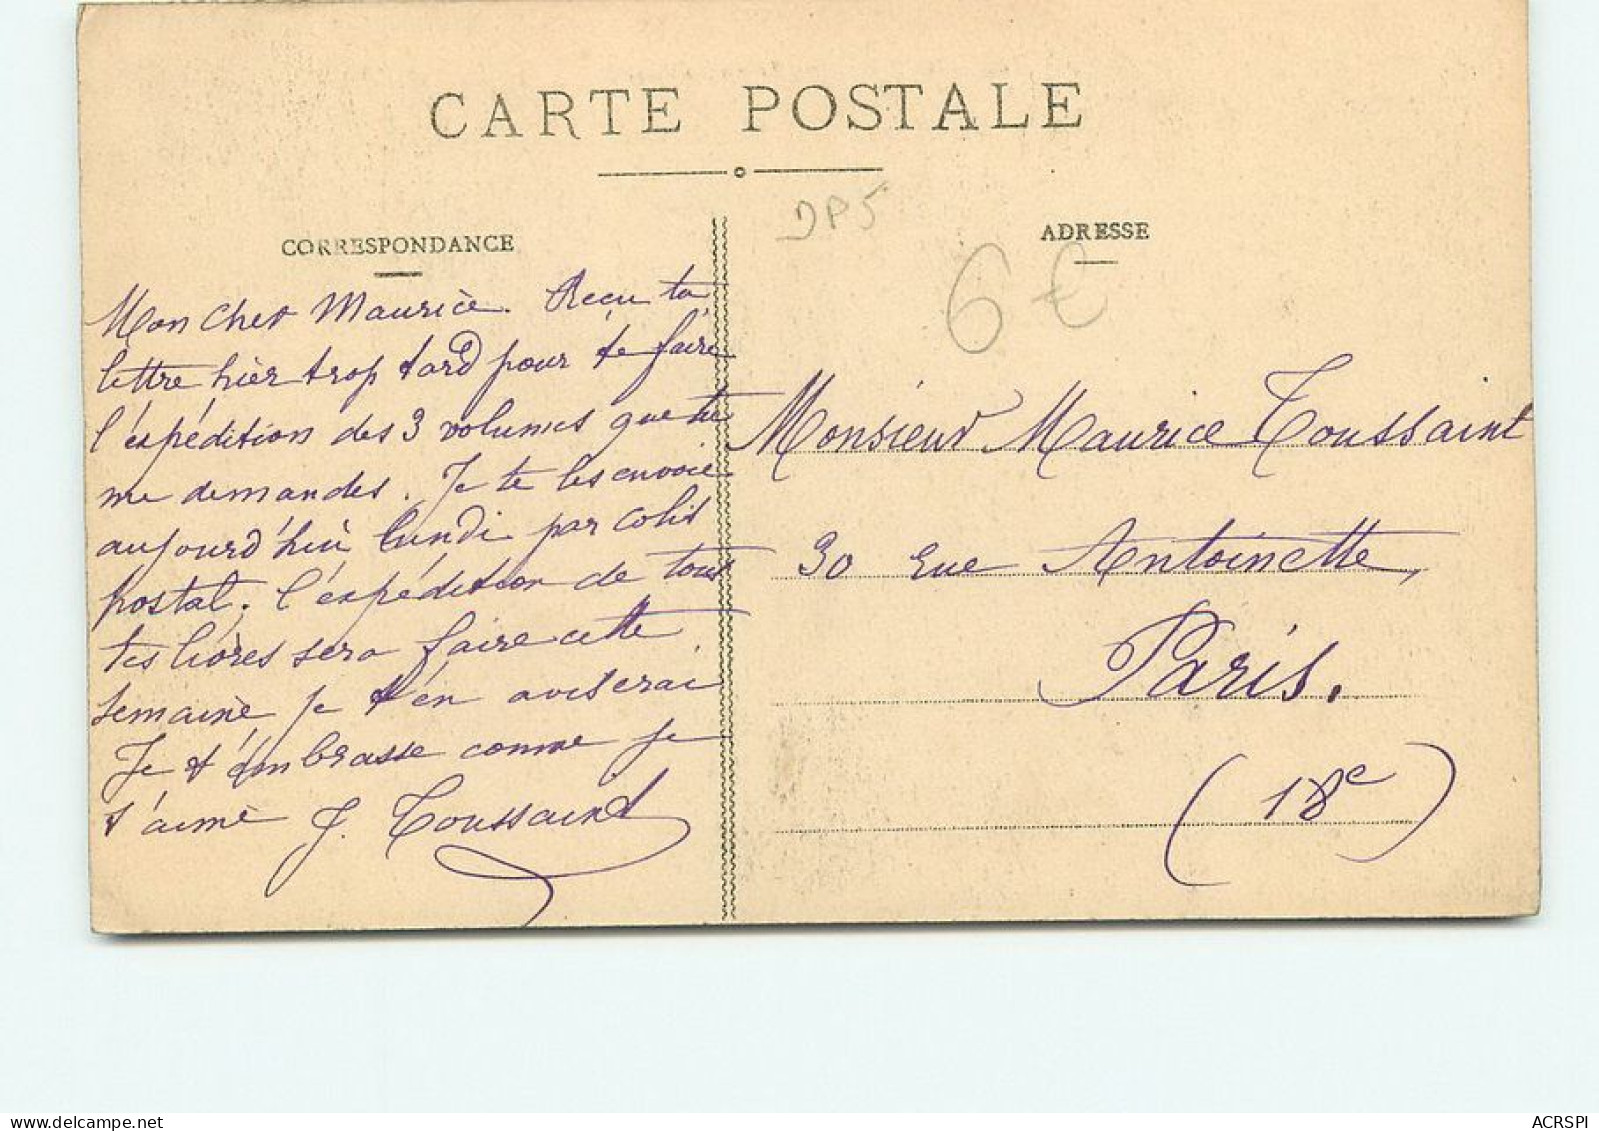 CARTE POSTALE
DP5
CORRESPONDANCE
ADRESSE
6€
Mon cher Maurice. Recu ta
lettre hièr trop tard pour te faire
l'éxpédition des 3 volumes que tu
me demandes. Je te les envoie
aujourd'hui lundi par colis
postal. l'éxpédition de tous
tes livres sera faire cette
semaine je t'en aviserai
Je t'émbrasse comme je
t'aime J. Toussaint
Monsieur Maurice Toussaint
30 Rue Antoinette,
Paris.
(18e)
ACRSPI